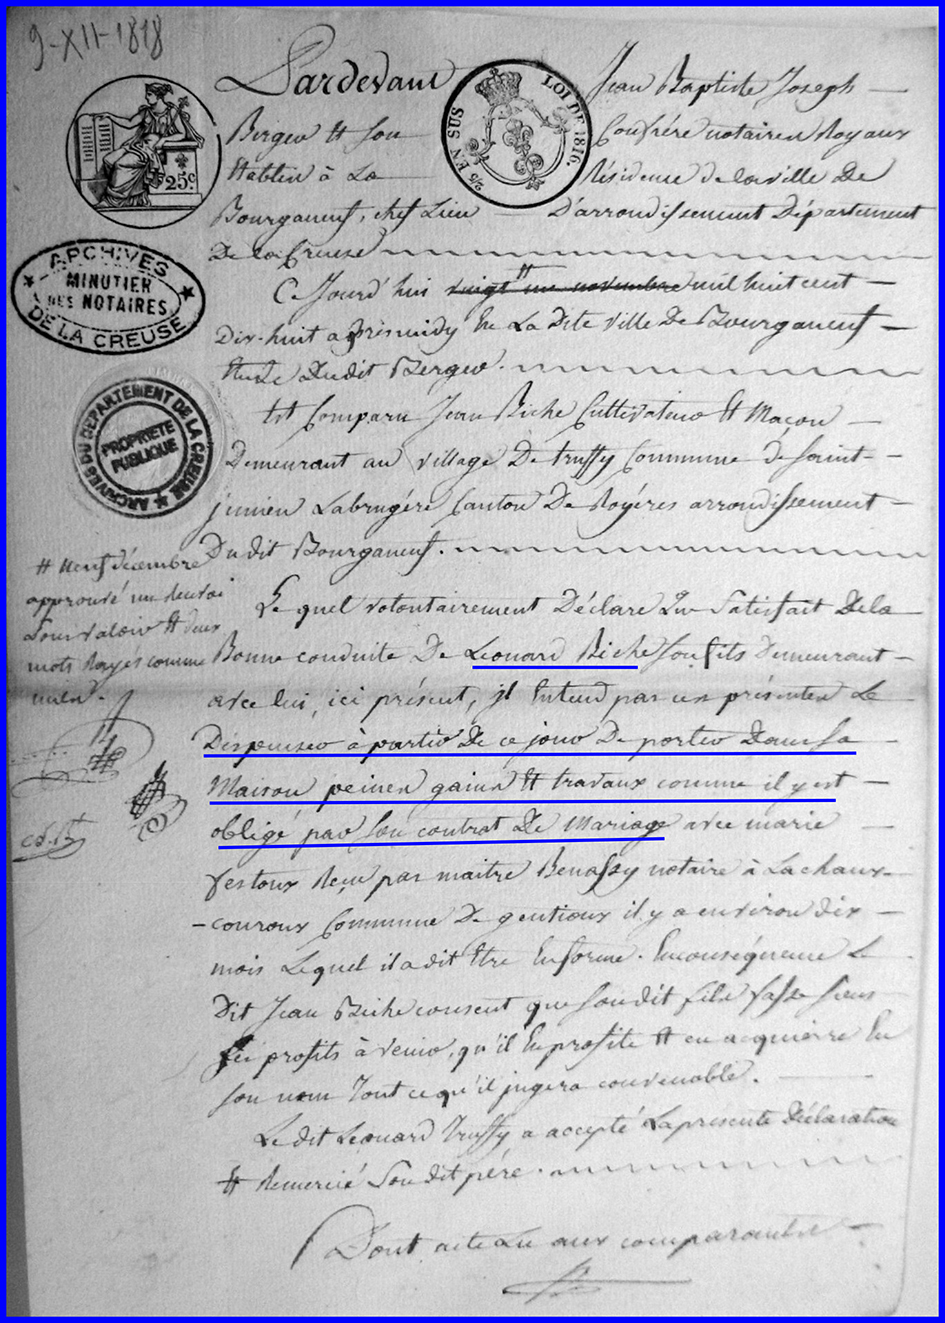 9-XII-1818
Pardevant Jean Baptiste Joseph
Berger et son Confrére notaires Royaux
établis à La Résidence de la ville De
Bourganeuf, chef Lieu D'arrondissement Département
De la Creuse
25c
25/ EN SUS
LOI DE 1816.
ARCHIVES
MINUTIER
DES NOTAIRES
DE LA CREUSE
Ce Jourd'hui vingt un novembre # mil huit cent
Dix-huit après midy En La Dite ville De Bourganeuf
Etude Dudit Berger.
ARCHIVES DU DEPARTEMENT DE LA CREUSE
PROPRIETE
PUBLIQUE
Est Comparu Jean Riche Cultivateur et Maçon
Demeurant au village De truffy Commune de Saint-
junien Labrugére Canton De Royéres arrondissement
Du dit Bourganeuf.
# Neuf décembre
approuvé un renvoi
Pour valoir et deux
mots Rayés comme
nuls.
Le quel volontairement Déclare Que Satisfait De la
Bonne conduite De Leonard Riche Son fils Demeurant
avec lui, ici présent, jl Entend par ces présentes Le
Dispenser à partir De ce jour De porter Dans Sa
Maison peines gains et travaux comme il y est
obligé par Son contrat De Mariage avec marie
festoux Reçu par maitre Benassy notaire à Lachaux-
-couroux Commune De gentioux il y a environ dix
mois Lequel il a dit Etre En forme. En conséquence Le
Dit Jean Riche consent que Son dit fils fasse Siens
Ses profits à venir, qu'il En profite et en acquierre En
Son nom Tout ce qu'il jugera convenable.
Le dit Leonard Truffy a accepté La presente Déclaration
et Remercié Son dit pére.
Dont acte Lu aux comparants